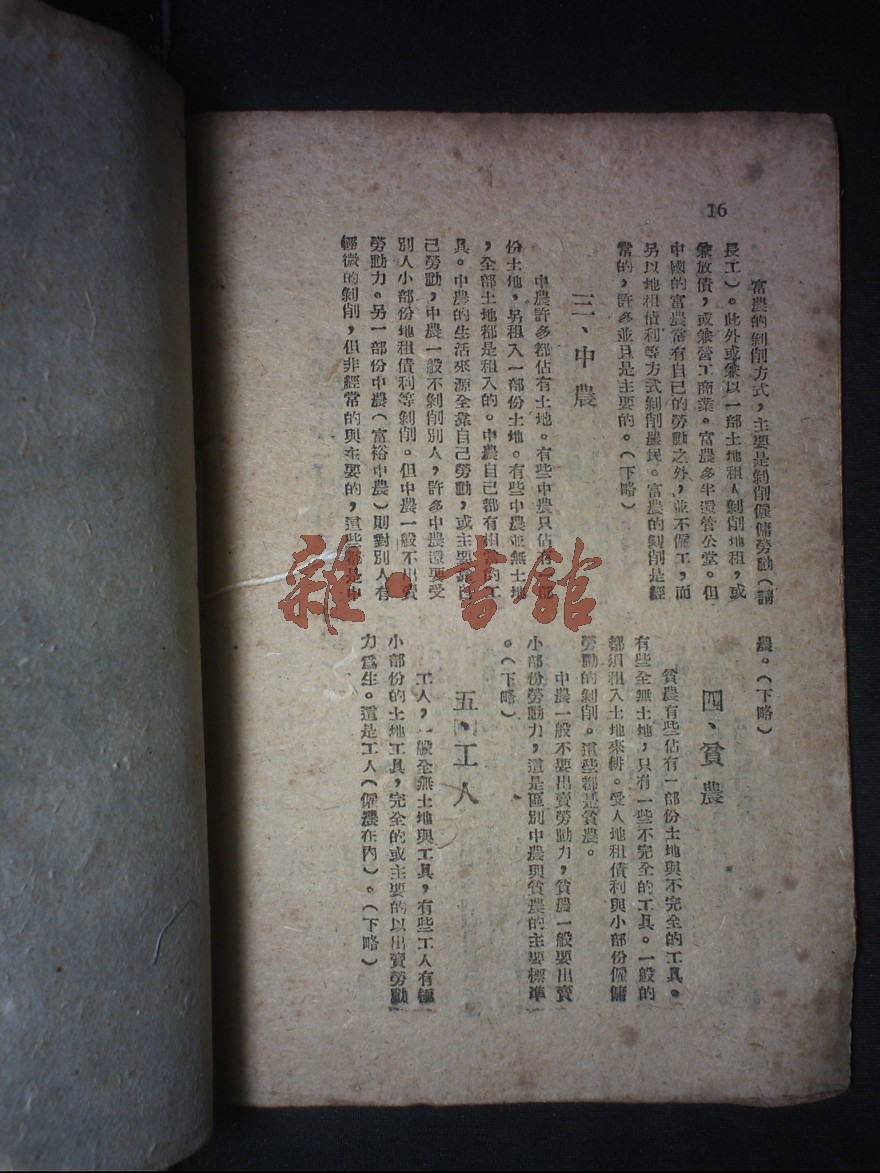 16
富農的剝削方式，主要是剝削僱傭勞動（請
長工）。此外或兼以一部土地租人剝削地租，或
兼放債，或兼營工商業。富農多半還管公堂。但
中國的富農常有自己的勞動之外，並不僱工，而
另以地租債利等方式剝削農民。富農的剝削是經
常的，許多並且是主要的。（下略）
三、中農
中農許多都佔有土地。有些中農只佔有一部
份土地，另租入一部份土地。有些中農並無土地
，全部土地都是租入的。中農自己都有相當的工
具。中農的生活來源全靠自己勞動，或主要靠自
己勞動，中農一般不剝削別人，許多中農還要受
別人小部份地租債利等剝削。但中農一般不出賣
勞動力。另一部份中農（富裕中農）則對別人有
輕微的剝削，但非經常的與主要的，這些都是中
農。（下略）
四、貧農
貧農有些佔有一部份土地與不完全的工具。
有些全無土地，只有一些不完全的工具。一般的
都須租入土地來耕。受人地租債利與小部份僱傭
勞動的剝削。這些都是貧農。
中農一般不要出賣勞動力，貧農一般要出賣
小部份勞動力，這是區別中農與貧農的主要標準
。（下略）
五、工人
工人，一般全無土地與工具，有些工人有極
小部份的土地工具，完全的或主要的以出賣勞動
力為生。這是工人（僱農在內）。（下略）
雜·書館